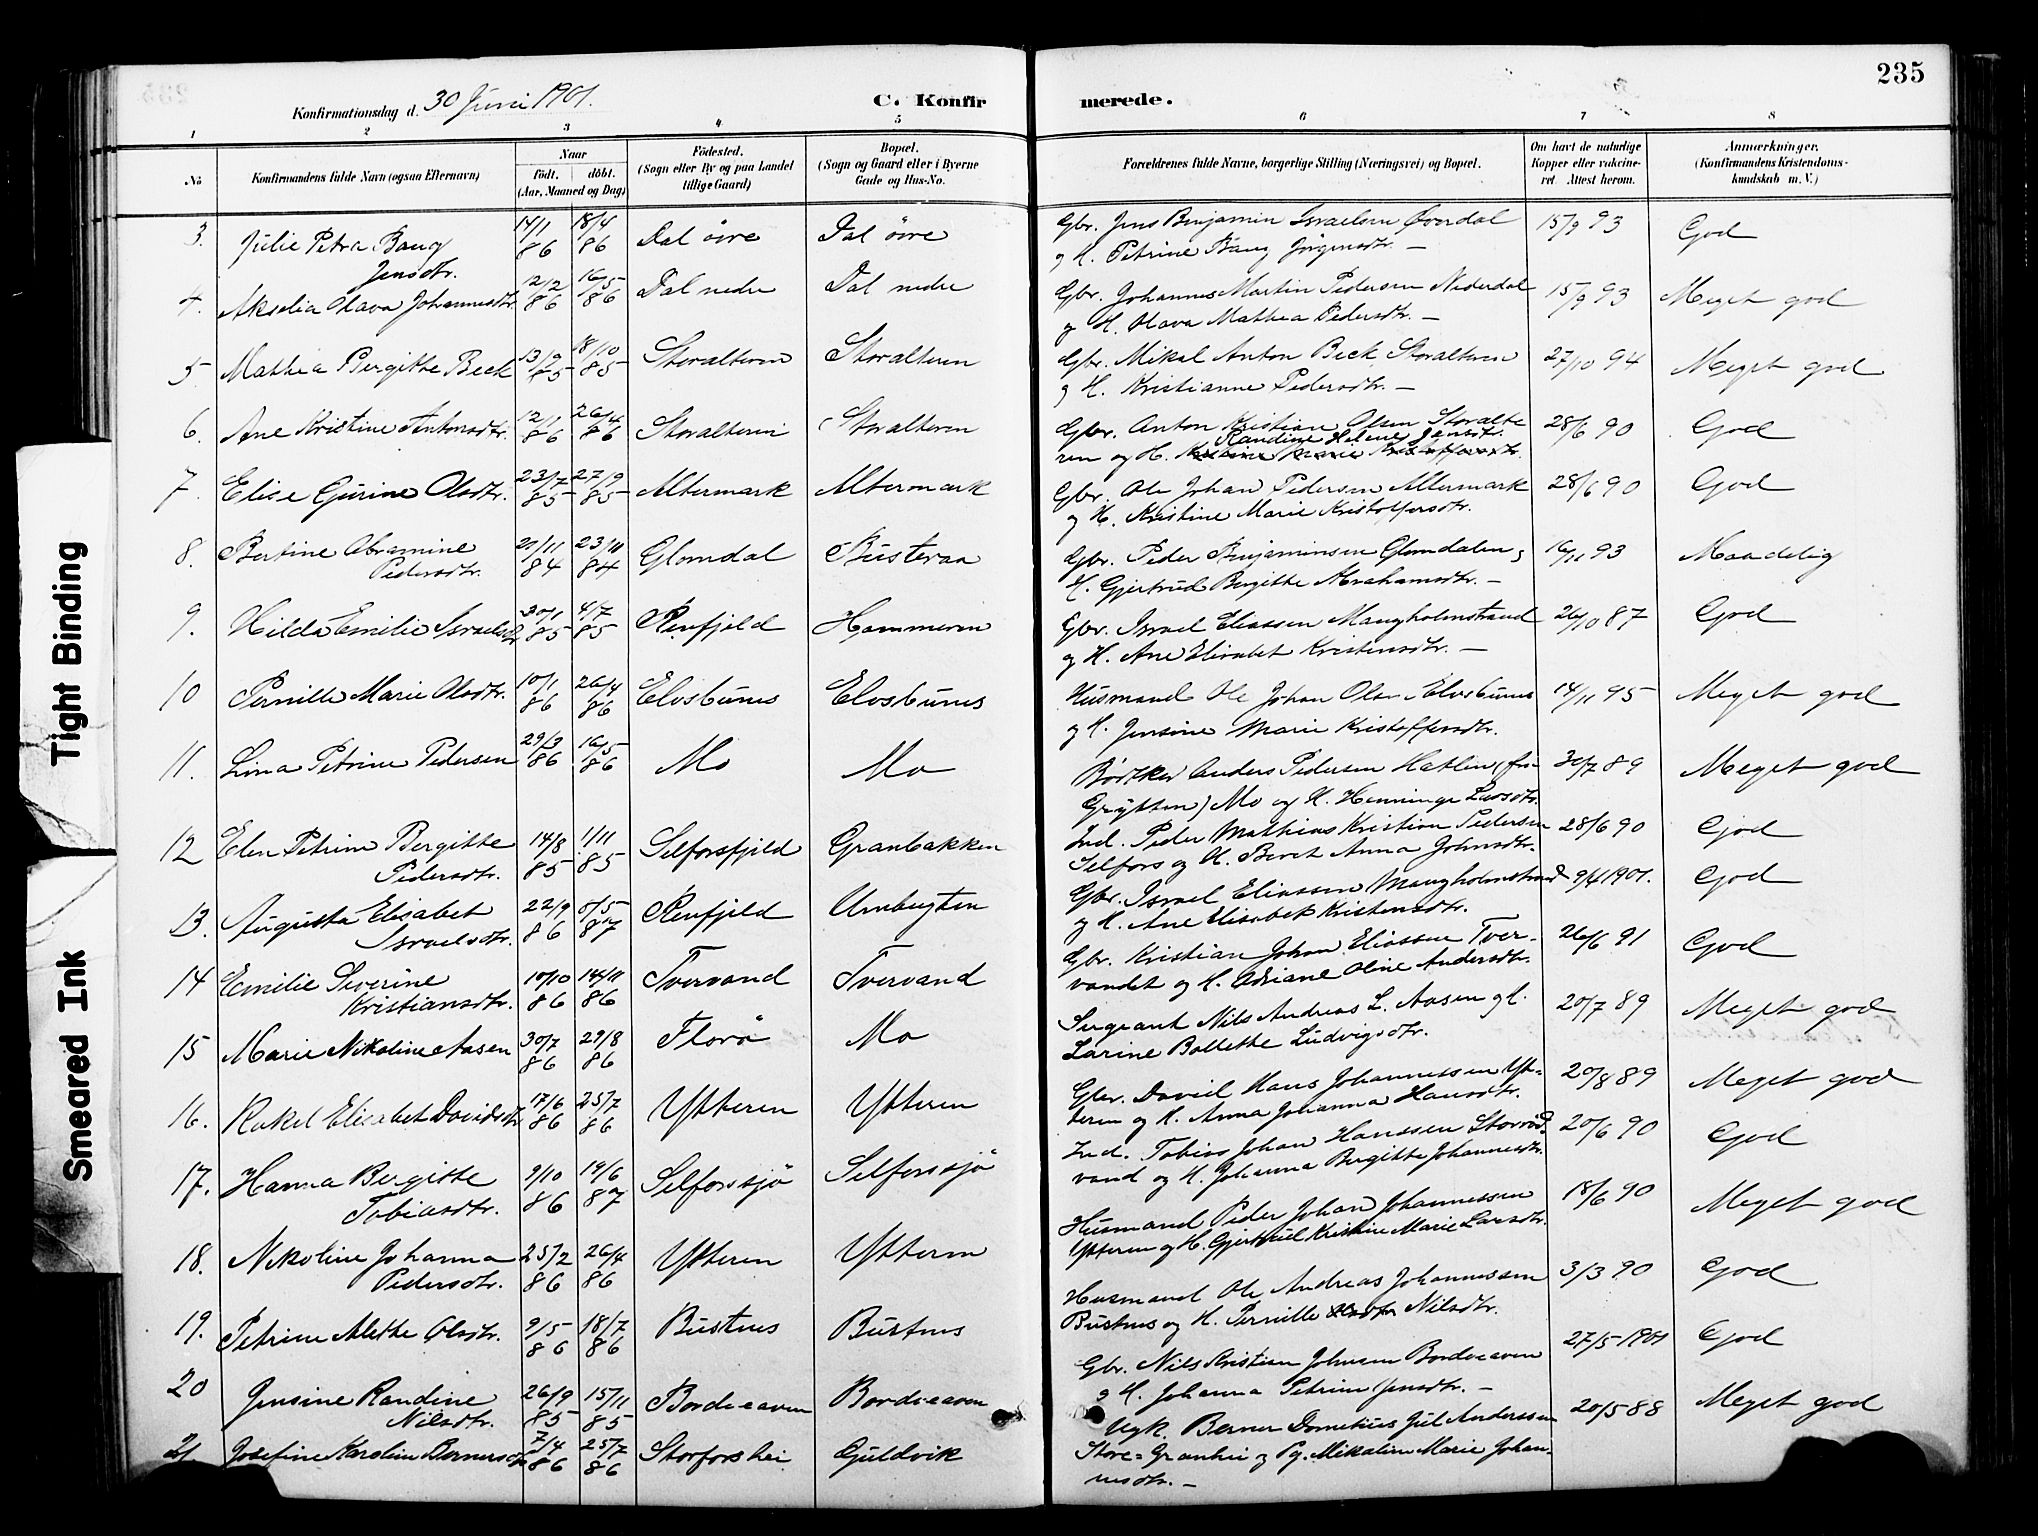 Tight Binding
Smeared Ink
Konfirmationsdag d. 30 Juni 1901.
C. Konfirmerede.
235
1 2 3 4 5 6 7 8
No
Konfirmandens fulde Navn (ogsaa Efternavn)
Naar
født. døbt.
(Aar, Maaned og Dag)
Fødested.
(Sogn eller By og paa Landet
tillige Gaard)
Bopæl.
(Sogn og Gaard eller i Byerne
Gade og Hus-No.
Forældrenes fulde Navne, borgerlige Stilling (Næringsvei) og Bopæl.
Om havt de naturlige
Kopper eller vaksine-
ret. Attest herom.
Anmærkninger.
(Konfirmandens Kristendoms-
kundskab m. V.)
3. Julie Petra Baug Jensdtr. 14/1 86 18/4 86 Dal övre Dal övre Gbr. Jens Benjamin Israelsen Øverdal
og H. Petrine Baug Jørgensdtr. — 15/9 93 God
4. Akselia Olava Johannesdtr. 12/2 86 16/5 86 Dal nedre Dal nedre Gbr. Johannes Martin Pedersen Nederdal
og H. Olava Mathea Pedersdtr. — 15/9 93 Meget god
5 Mathea Bergitte Beck 13/9 85 18/10 85 Storalteren Storalteren Gbr. Mikal Anton Beck Storalteren
og H. Kristianne Pedersdtr. — 27/10 94 Meget god
6. Ane Kristine Antonsdtr. 12/1 86 26/4 86 Storalteren Storalteren Gbr. Anton Kristian Olsen Storalte
Randine Helene Jensdtr.
ren og H. Kristine Marie Kristoffersdtr. 28/6 90 God
7. Elise Gurine Olsdtr. 23/7 85 27/9 85 Altermark Altermark Gbr. Ole Johan Pedersen Altermark
og H. Kristine Marie Kristoffersdtr. 28/6 90 God
8. Bertine Abramine Pedersdtr. 21/11 84 23/11 84 Glomdal Busteraa Gbr. Peder Benjaminsen Glomdalen og
H. Gjertrud Bergitte Abrahamsdtr. — 16/11 93 Maadelig
9. Hilda Emilie Israelsdtr 30/1 85 4/7 85 Renfjeld Hammeren Gbr. Israel Eliassen Mangholmstrand
og H. Ane Elisabet Kristensdtr. — 26/10 87 God
10 Pernille Marie Olsdtr. 10/1 86 26/4 86 Elvsbunes Elvsbunes Husmand Ole Johan Olsen Elvsbunes
og H. Jensine Marie Kristoffersdtr. 14/11 95 Meget god
11. Lina Petrine Pedersen 29/3 86 16/5 86 Mo Mo Bødker Anders Pedersen Hatlin (fra
Grytten) Mo og H. Henninge Larsdtr. 30/7 89 Meget god
12 Elen Petrine Bergitte Pedersdtr. 14/8 85 1/11 85 Selforsfjeld Granbakken Ind. Peder Mathias Kristian Pedersen
Selfors og H. Beret Anna Johnsdtr. 28/6 90 God
13. Augusta Elisabet Israelsdtr. 22/9 86 8/5 87 Renfjeld Umbugten Gbr. Israel Eliassen Mangholmstrand
og H. Ane Elisabet Kristensdtr. 9/4 1901. God
14 Emilie Severine Kristiansdtr. 10/10 86 14/11 86 Tvervand Tvervand Gbr. Kristian Johan Eliassen Tver-
vandet og H. Adriane Oline Andersdtr. 26/6 91 God
15 Marie Nikoline Aasen 30/7 86 29/8 86 Florö Mo Sergeant Nils Andreas L. Aasen og H.
Larine Bollette Ludvigsdtr. 20/7 89 Meget god
16. Rakel Elisabet Davidsdtr 17/6 86 25/7 86 Ytteren Ytteren Gbr. David Hans Johannessen Yt-
teren og H. Anna Johanna Hansdtr. 20/8 89 Meget god
17. Hanna Bergitte Tobiasdtr. 9/10 86 19/6 87 Selforssjö Selforssjö Ind. Tobias Johan Hanssen
vand og H. Johanna Bergitte Johannesdtr. 20/6 90 God
18. Nikoline Johanna Pedersdtr. 25/2 86 26/4 86 Ytteren Ytteren Husmand Peder Johan Johannessen
Ytteren og H. Gjertrud Kristine Marie Larsdtr. 18/6 90 Meget god
19. Petrine Alette Olsdtr. 9/5 86 18/7 86 Bustnes Bustnes Husmand Ole Andreas Johannessen
Bustnes og H. Pernille Olsdtr Nilsdtr. 3/3 90 God
20 Jensine Randine Nilsdtr. 26/9 85 15/11 85 Bordveaven Bordveaven Gbr. Nils Kristian Johnsen Bordveaven
og H. Johanna Petrine Jensdtr. — 27/5 1901 God
21 Josefine Karoline Bernersdtr 7/4 86 25/7 86 Storforshei Guldvik Ugk. Berner Dometius Jul Anderssen
Store-Granhei og Pg. Mikaline Marie Johan-
nesdtr. — 20/5 88 Meget god